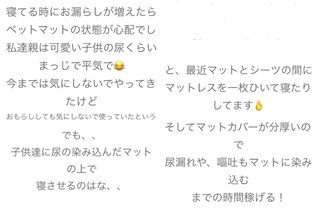 寝てる時にお漏らしが増えたら
ベットマットの状態が心配でし
私達親は可愛い子供の尿くらい
まっじで平気で😂
今までは気にしないでやってき
たけど
おもらししても気にしないで使っていたという
でも、、
子供達に尿の染み込んだマット
の上で
寝させるのはな、、
と、最近マットとシーツの間に
マットレスを一枚ひいて寝たり
してます👌
そしてマットカバーが分厚いの
で
尿漏れや、嘔吐もマットに染み
込む
までの時間稼げる！